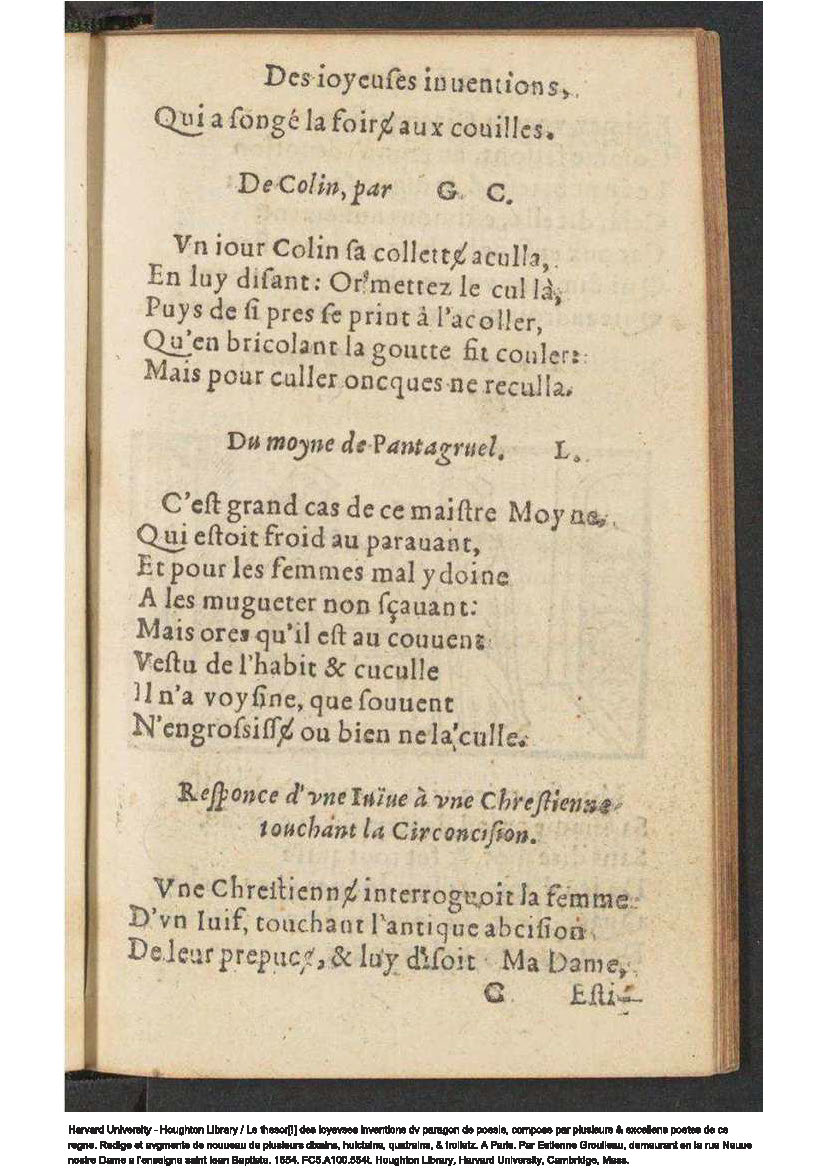 Des ioyeuſes inuentions,
Qui a ſongé la foirɇ aux couilles.
De Colin, par G. C.
Vn iour Colin ſa collettɇ aculla,
En luy diſant: Or mettez le cul là,
Puys de ſi pres ſe print à l'acoller,
Qu'en bricolant la goutte fit couler:
Mais pour culler oncques ne reculla.
Du moyne de Pantagruel. L.
C'eſt grand cas de ce maiſtre Moyne,
Qui eſtoit froid au parauant,
Et pour les femmes mal ydoine
A les mugueter non ſçauant:
Mais ores qu'il eſt au couuent
Veſtu de l'habit & cuculle
Il n'a voyſine, que ſouuent
N'engroſsiſſɇ ou bien ne la culle.
Reſponce d'vne Iuïue à vne Chreſtienne
touchant la Circonciſion.
Vne Chreſtiennɇ interroguoit la femme
D'vn Iuif, touchant l'antique abciſion
De leur prepucɇ, & luy diſoit Ma Dame,
G Eſti-
Harvard University - Houghton Library / Le thesor[!] des ioyevses inventions dv paragon de poesie, compose par plusieurs & excellens poetes de ce
regne. Redige et avgmente de nouueau de plusieurs dixains, huictains, quatrains, & trolletz. A Paris. Par Estienne Groulleau, demeurant en la rue Neuue
nostre Dame a l'enseigne saint Iean Baptiste. 1554. FC5.A100.554t. Houghton Library, Harvard University, Cambridge, Mass.